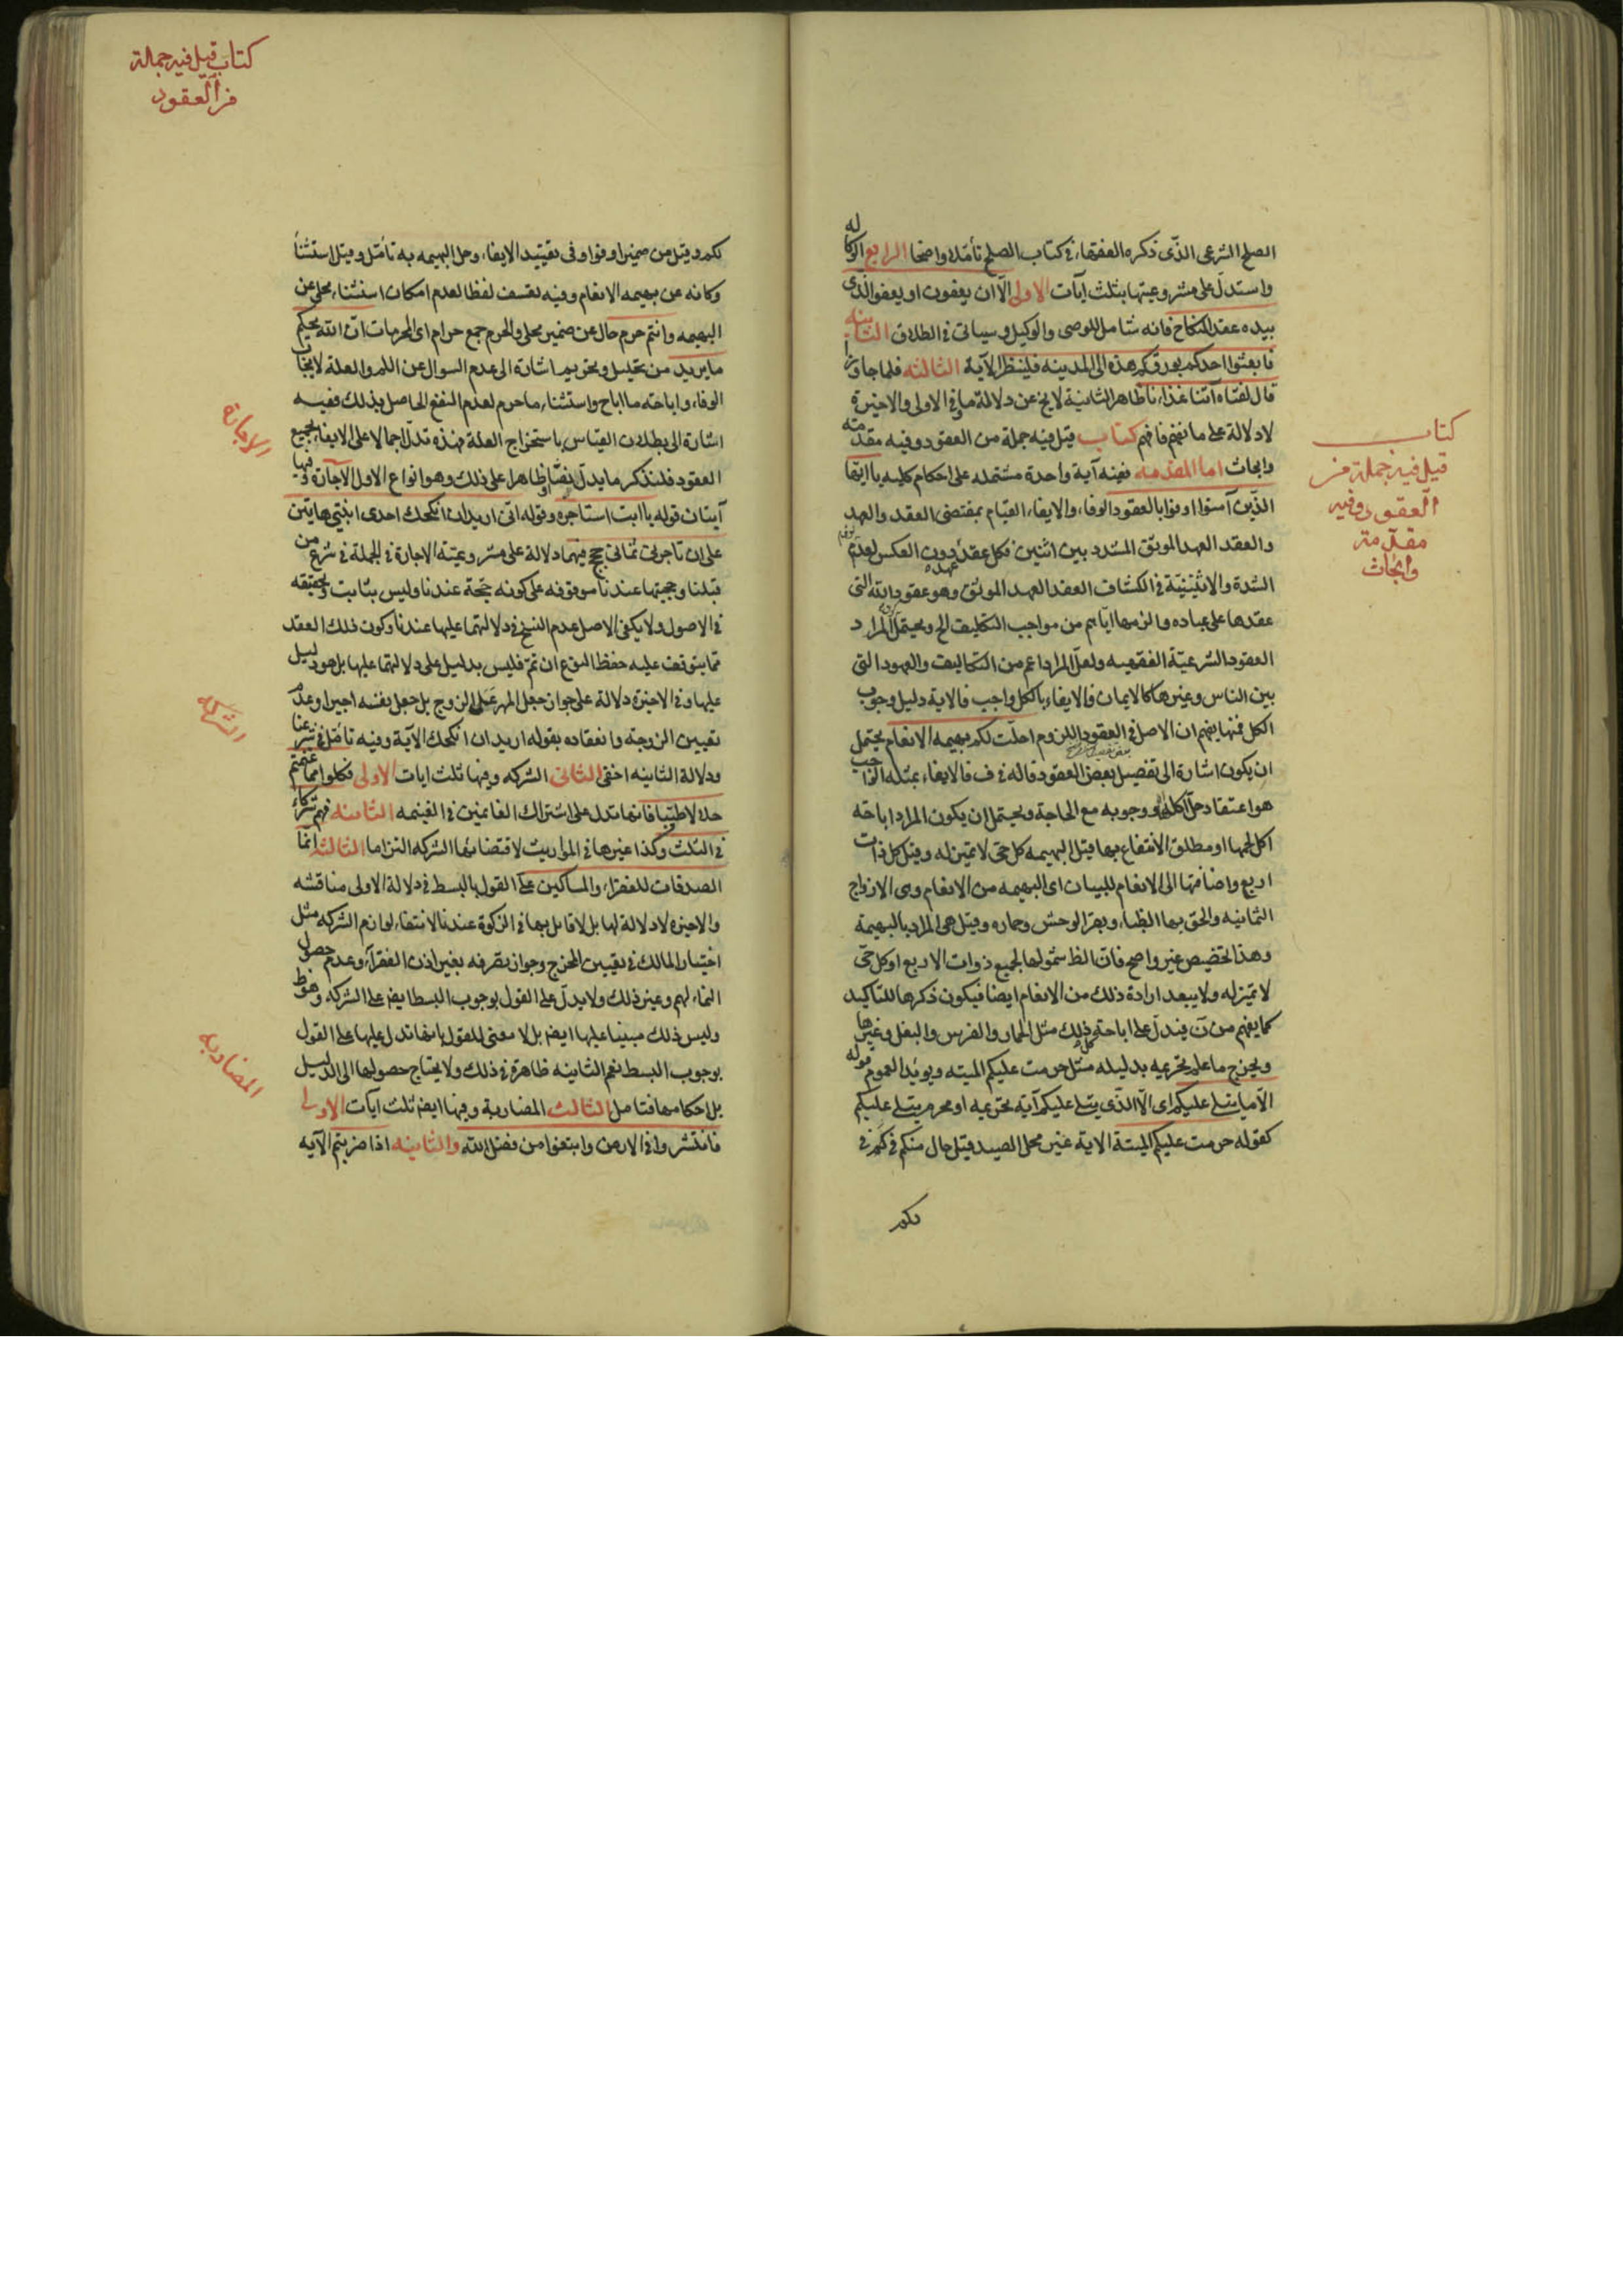 الصلح الشرعى الذى ذكره الفقهاء فى كتاب الصلح تأمله واضحا الرابع الوكاله
واستدل على مشروعيتها بثلث آيات الاولى الا ان يعفون او يعفو الذى
بيده عقد النكاح فانه شامل للوصى والوكيل وسياتى فى الطلاق الثانيه
فابعثوا احدكم بورقكم هذه الى المدينه فلينظر الآية الثالثه فلما جاوزا
قال لفتاه آتنا غذاءنا ظاهر الثانية لا يخ عن دلالة ما فى الاولى والاخيرة
لا دلالة على ما نفهم فافهم كتاب قيل فيه جملة من العقود وفيه مقدمته
وابحاث اما المقدمه ففيه آية واحدة مشتمله على احكام كليه يا ايها
الذين آمنوا اوفوا بالعقود الوفاء والايفاء القيام بمقتضى العقد والعهد
والعقد العهد الموثق المشدد بين اثنين فكل عقد عهد دون العكس لعدم
الشدة والاثنينية فى الكشاف العقد العهد الموثق وهو عقود الله التى
عقدها على عباده والزمها اياهم من مواجب التكليف الخ ويحتمل المراد
العقود الشرعية الفقهيه ولعل المراد اعم من التكاليف والعهود التى
بين الناس وغيرها كالايمان فالايفاء بالكل واجب فالاية دليل وجوب
الكل فمنها يفهم ان الاصل فى العقود اللزوم احلت لكم بهيمه الانعام يحتمل
ان يكون اشارة الى تفصيل بعض العقود قاله فى ف فالايفاء بمثله الواجب
هو اعتقاد حل اكله ووجوبه مع الحاجة ويحتمل ان يكون المراد اباحة
اكل لحمها او مطلق الانتفاع بها قيل البهيمه كل حى لا تميز له وقيل كل ذات
اربع واضافتها الى الانعام للبيان اى البهيمه من الانعام وهى الازواج
الثمانيه والحق بها الظباء وبقر الوحش وحماره وقيل هى المراد بالبهيمة
وهذا التخصيص غير واضح فان الظ شمولها لجميع ذوات الاربع او كل حى
لا تميز له ولا يبعد ارادة ذلك من الانعام ايضا فيكون ذكرها للتاكيد
كما يفهم من ن فيدل على اباحة كل ذلك مثل الحمار والفرس والبغل وغيرها
ويخرج ما علم تحريمه بدليله مثل حرمت عليكم الميته ويويد العموم قوله
الا ما يتلى عليكم اى الا الذى يتلى عليكم آية تحريمه او محرم يتلى عليكم
كقوله حرمت عليكم الميتة الاية غير محلى الصيد قيل حال منكم فى لكم
لكم
كتاب
قيل فيه جملة من
العقود وفيه
مقدمة
وابحاث
كتاب قيل فيه جملة
من العقود
لكم وقيل من ضمير اوفوا وفى تقييد الايفاء وحل البهيمه به تأمل وقيل استثناء
وكانه عن بهيمه الانعام وفيه تعسف لفظا لعدم امكان استثناء محلى عن
البهيمه وانتم حرم حال عن ضمير محلى والحرم جمع حرام اى المحرمات ان الله يحكم
ما يريد من تحليل وتحريم اشارة الى عدم السوال عن اللم والعلة لايجاب
الوفاء واباحته ما اباح واستثناء ما حرم لعدم النفع الحاصل بذلك ففيه
اشارة الى بطلان القياس باستخراج العلة فهذه تدل اجمالا على الايفاء بجميع
العقود فلنذكر ما يدل نصا او ظاهرا على ذلك وهو انواع الاول الاجارة وفيها
آيتان قوله يا ابت استاجره وقوله انى اريد ان انكحك احدى ابنتى هاتين
على ان تاجرنى ثمانى حجج فيهما دلالة على مشروعيته الاجارة فى الجملة فى شرع من
قبلنا وحجيتها عندنا موقوفه على كونه حجة عندنا وليس بثابت وتحقيقه
فى الاصول ولا يكفى الاصل عدم النسخ فى دلالتهما عليها عندنا وكون ذلك العقد
مما يتوقف عليه حفظ النوع ان تم فليس بدليل على دلالتهما عليها بل هو دليل
عليها وفى الاخيرة دلالة على جواز جعل المهر عمل الزوج بل جعل نفسه اجيرا وعدم
تعيين الزوجة وانعقاده بقوله اريد ان انكحك الآية وفيه تأمل فى شرعنا
ودلالة الثانيه اخفى الثانى الشركه وفيها ثلث ايات الاولى فكلوا مما غنمتم
حلالا طيبا فانها تدل على اشتراك الغانمين فى الغنيمه الثانيه فهم شركاء
فى الثلث وكذا غيرها فى المواريث لاقتضائها الشركه التزاما الثالثه انما
الصدقات للفقراء والمساكين على القول بالبسط فى دلالة الاولى مناقشه
والاخيرة لا دلالة لها بل لا قايل بها فى الزكوة عندنا لانتفاء لوازم الشركه مثل
اختيار المالك فى تعيين المخرج وجواز تصرفه بغير اذن الفقراء وعدم حصول
النماء لهم وغير ذلك ولا يدل على القول بوجوب البسط ايض على الشركه وهو ظ
وليس ذلك مبينا عليها ايض بل لا معنى للقول بانها تدل عليها على القول
بوجوب البسط نعم الثانيه ظاهرة فى ذلك ولا يحتاج حصولها الى الدليل
بل احكامها فتامل الثالث المضاربة وفيها ايض ثلث آيات الاولى
فانتشروا فى الارض وابتغوا من فضل الله والثانيه اذا ضربتم الآيه
الاجارة
الشركه
المضاربه